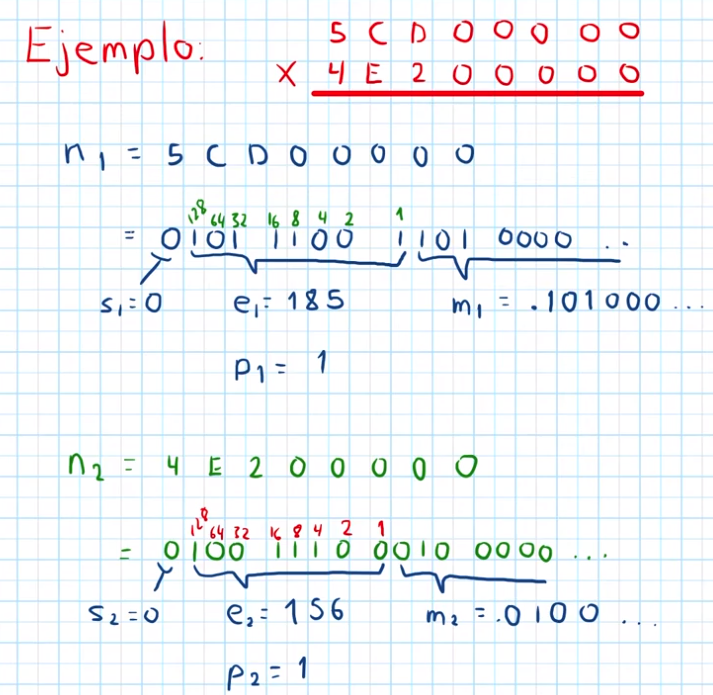 Ejemplo: 5 C D 0 0 0 0 0
x 4 E 2 0 0 0 0 0
n1 = 5 C D 0 0 0 0 0
128 64 32 16 8 4 2 1
= 0101 1100 1101 0000 ..
s1=0 e1=185 m1 = .101000...
p1 = 1
n2 = 4 E 2 0 0 0 0 0
128 64 32 16 8 4 2 1
= 0100 1110 0010 0000 ...
s2=0 e2=156 m2 = .0100 ...
p2 = 1